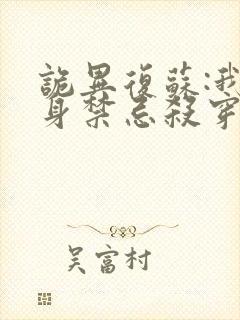 詭異復蘇:我
身禁忌殺穿
吴富村